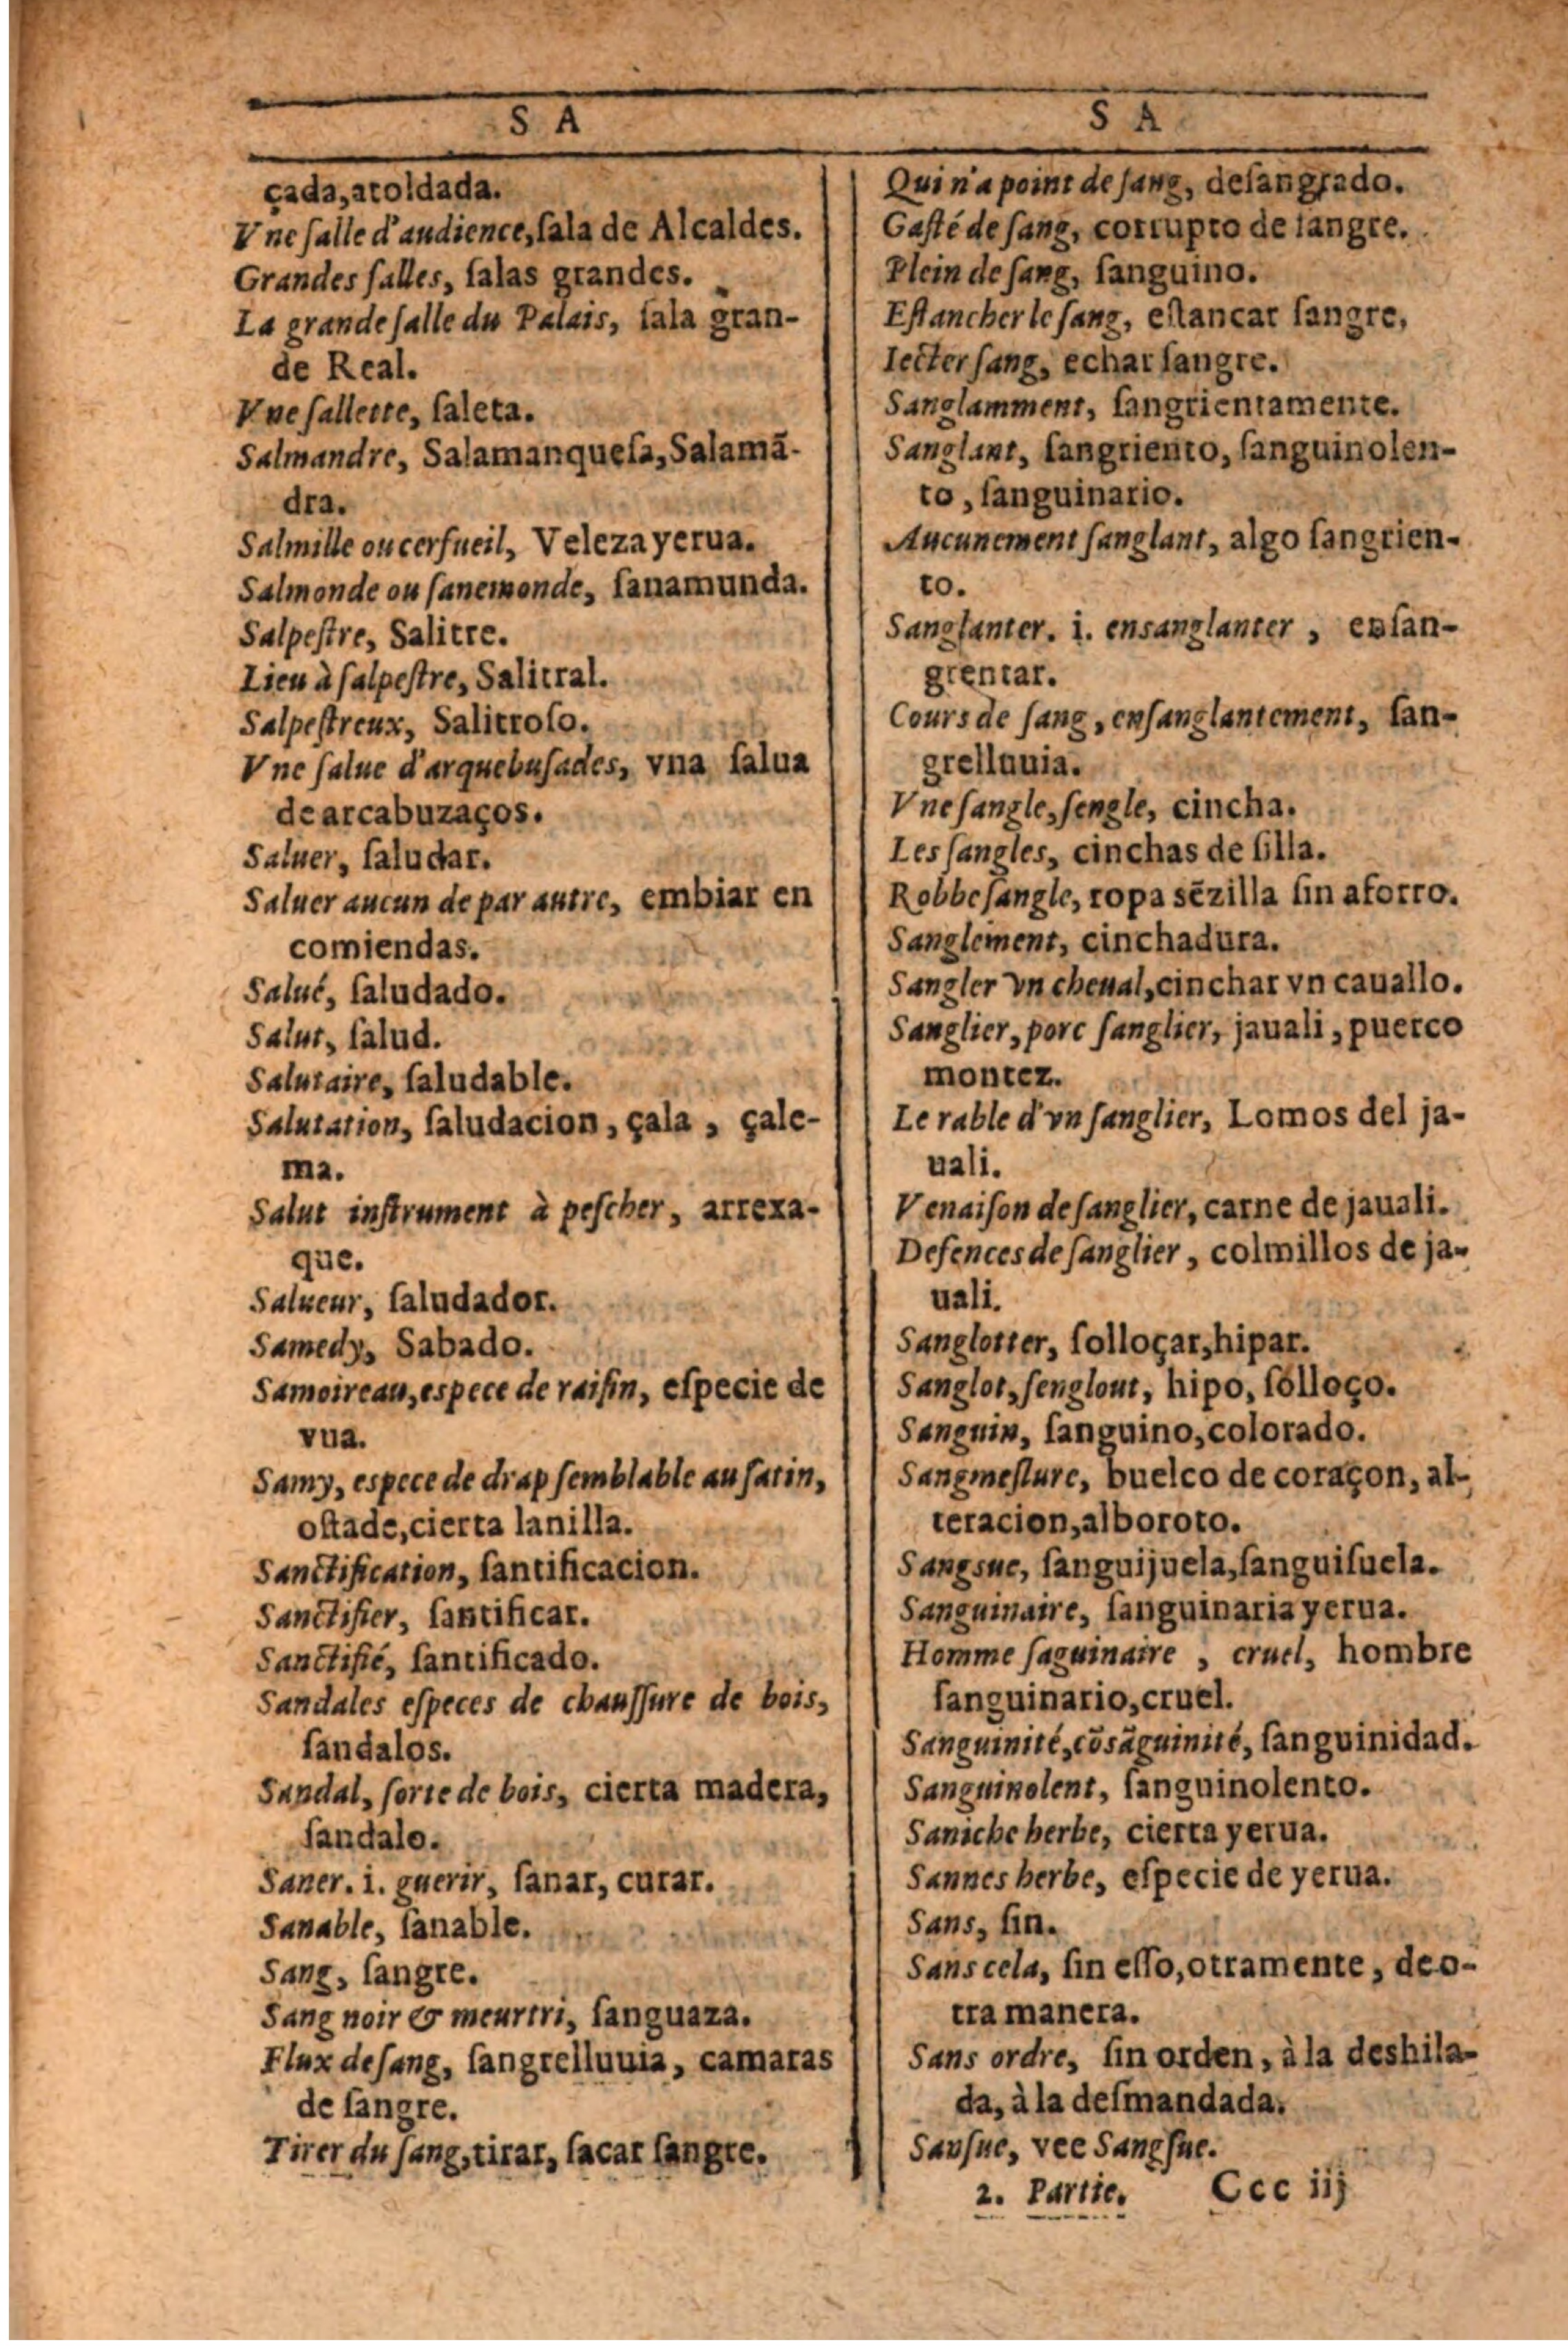 S A
çada,atoldada.
Vne ſalle d'audience,ſala de Alcaldes.
Grandes ſalles, ſalas grandes.
La grande ſalle du Palais, ſala gran-
de Real.
Vne ſallette, ſaleta.
Salmandre, Salamanqueſa,Salamã-
dra.
Salmille ou cerfueil, Veleza yerua.
Salmonde ou ſanemonde, ſanamunda.
Salpeſtre, Salitre.
Lieu à ſalpeſtre, Salitral.
Salpeſtreux, Salitroſo.
Vne ſalue d'arquebuſades, vna ſalua
de arcabuzaços.
Saluer, ſaludar.
Saluer aucun de par autre, embiar en
comiendas.
Salué, ſaludado.
Salut, ſalud.
Salutaire, ſaludable.
Salutation, ſaludacion, çala, çale-
ma.
Salut inſtrument à peſcher, arrexa-
que.
Salueur, ſaludador.
Samedy, Sabado.
Samoireau,espece de raiſin, eſpecie de
vua.
Samy, espece de drap ſemblable au ſatin,
oſtade,cierta lanilla.
Sanctification, ſantificacion.
Sanctifier, ſantificar.
Sanctifié, ſantificado.
Sandales eſpeces de chauſſure de bois,
ſandalos.
Sandal, ſorte de bois, cierta madera,
ſandalo.
Saner. i. guerir, ſanar, curar.
Sanable, ſanable.
Sang, ſangre.
Sang noir & meurtri, ſanguaza.
Flux de ſang, ſangrelluuia, camaras
de ſangre.
Tirer du ſang,tirar, ſacar ſangre.
S A
Qui n'a point de ſang, deſangrado.
Gaſté de ſang, corrupto de ſangre.
Plein de ſang, ſanguino.
Eſtancher le ſang, eſtancar ſangre,
Iecter ſang, echar ſangre.
Sanglamment, ſangrientamente.
Sanglant, ſangriento, ſanguinolen-
to, ſanguinario.
Aucunement ſanglant, algo ſangrien-
to.
Sanglanter. i. ensanglanter, enſan-
grentar.
Cours de ſang, enſanglantement, ſan-
grelluuia.
Vne ſangle,ſengle, cincha.
Les ſangles, cinchas de ſilla.
Robbe ſangle, ropa sẽzilla ſin aforro.
Sanglement, cinchadura.
Sangler vn cheual,cinchar vn cauallo.
Sanglier,porc ſanglier, jauali, puerco
montez.
Le rable d'vn ſanglier, Lomos del ja-
uali.
Venaiſon de ſanglier, carne de jauali.
Defences de ſanglier, colmillos de ja-
uali.
Sanglotter, ſolloçar,hipar.
Sanglot,ſenglout, hipo, ſolloço.
Sanguin, ſanguino,colorado.
Sangmeſlure, buelco de coraçon, al-
teracion,alboroto.
Sangsue, ſanguijuela,ſanguiſuela.
Sanguinaire, ſanguinaria yerua.
Homme ſaguinaire, cruel, hombre
ſanguinario,cruel.
Sanguinité,cõsãguinité, ſanguinidad.
Sanguinolent, ſanguinolento.
Saniche herbe, cierta yerua.
Sannes herbe, eſpecie de yerua.
Sans, ſin.
Sans cela, ſin eſſo,otramente, de o-
tra manera.
Sans ordre, ſin orden, à la deshila-
da, à la deſmandada.
Sanſue, vee Sangſue.
2. Partie. Ccc iij